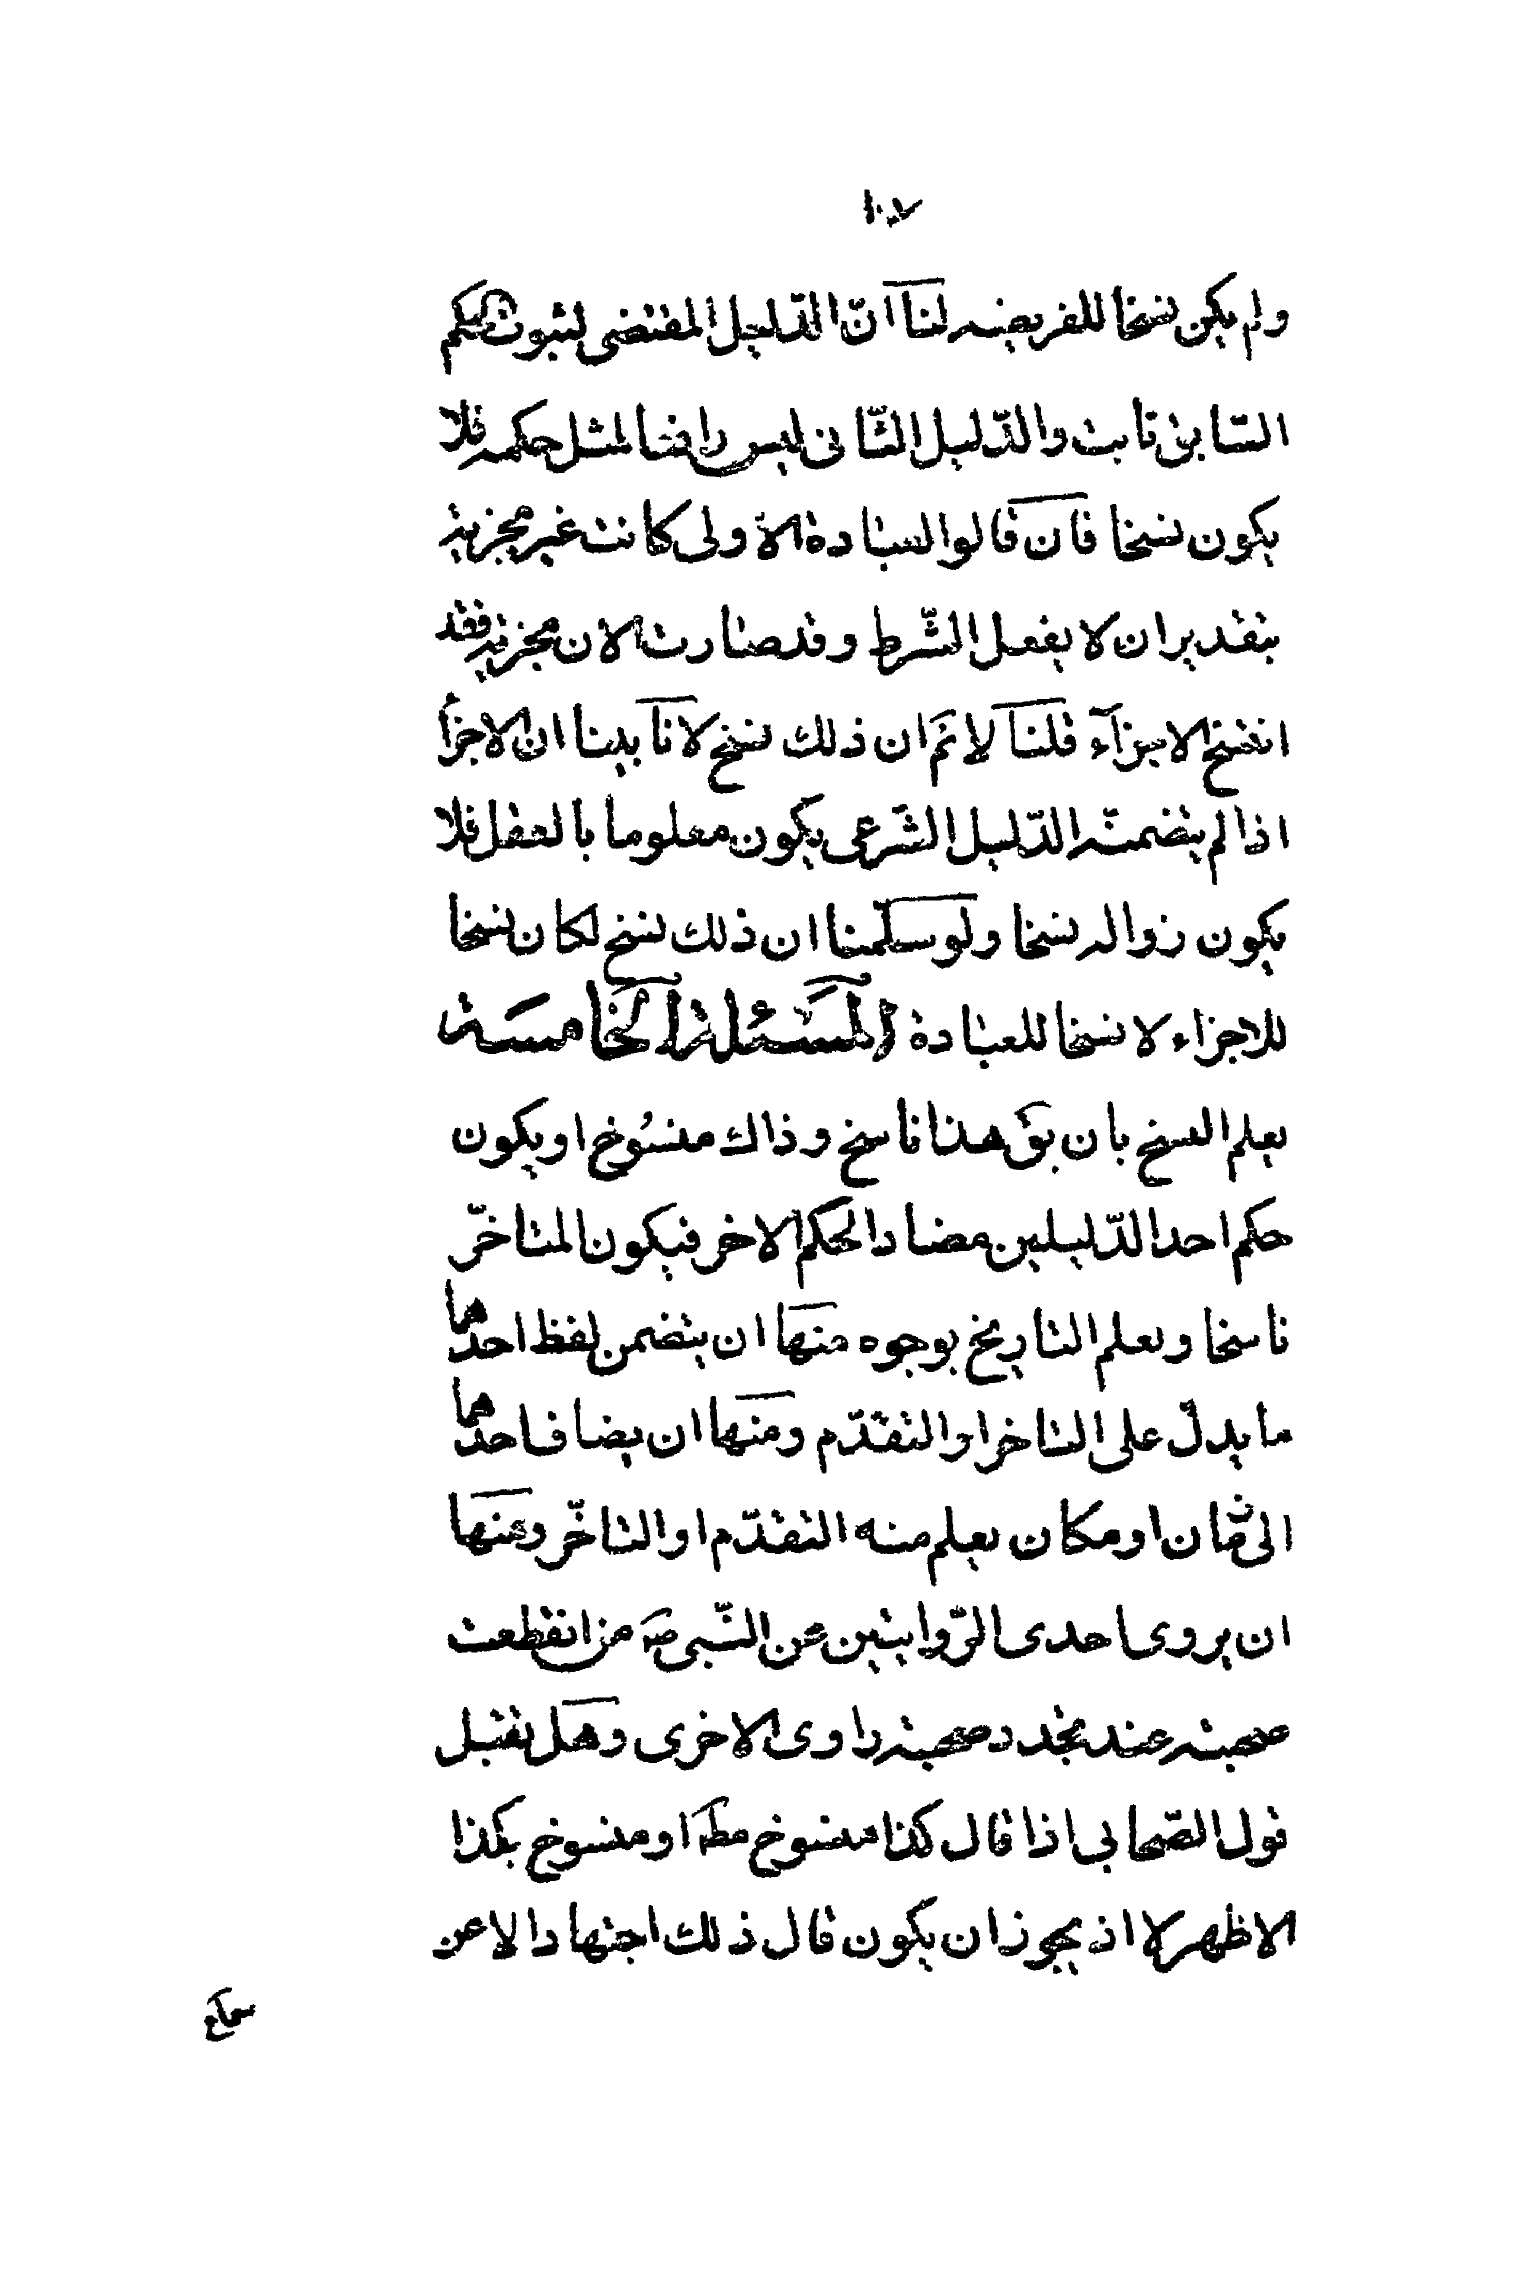 ١٠٧
ولم يكن نسخا للفريضه لنا انّ الدّليل المقتضى لثبوت الحكم
السّابق ثابت والدّليل الثّانى ليس رافعا لمثل حكمه فلا
يكون نسخا فان قالوا العبادة الاولى كانت غير مجزية
بتقدير ان لا يفعل الشّرط وقد صارت الان مجزية فقد
انتسخ الاجزآء قلنا لا نم ان ذلك نسخ لانا بينا ان الاجزأ
اذا لم يتضمنه الدّليل الشّرعى يكون معلوما بالعقل فلا
يكون زواله نسخا ولو سلّمنا ان ذلك نسخ لكان نسخا
للاجزاء لا نسخا للعبادة المسئلة الخامسة
يعلم النسخ بان يق هذا ناسخ وذاك منسوخ او يكون
حكم احد الدّليلين مضادا لحكم الاخر فيكون المتاخّر
ناسخا ويعلم التاريخ بوجوه منها ان يتضمن لفظ احدهما
ما يدلّ على التاخر او التقدّم ومنها ان يضاف احدهما
الى زمان او مكان يعلم منه التقدّم او التاخّر ومنها
ان يروى احدى الرّوايتين عن النّبى صه من انقطعت
صحبته عند تجدد صحبته راوى الاخرى وهل تقبل
قول الصّحابى اذا قال كذا منسوخ مطه او منسوخ بكذا
الاظهر لا اذ يجوز ان يكون قال ذلك اجتهادا لا عن
سماع